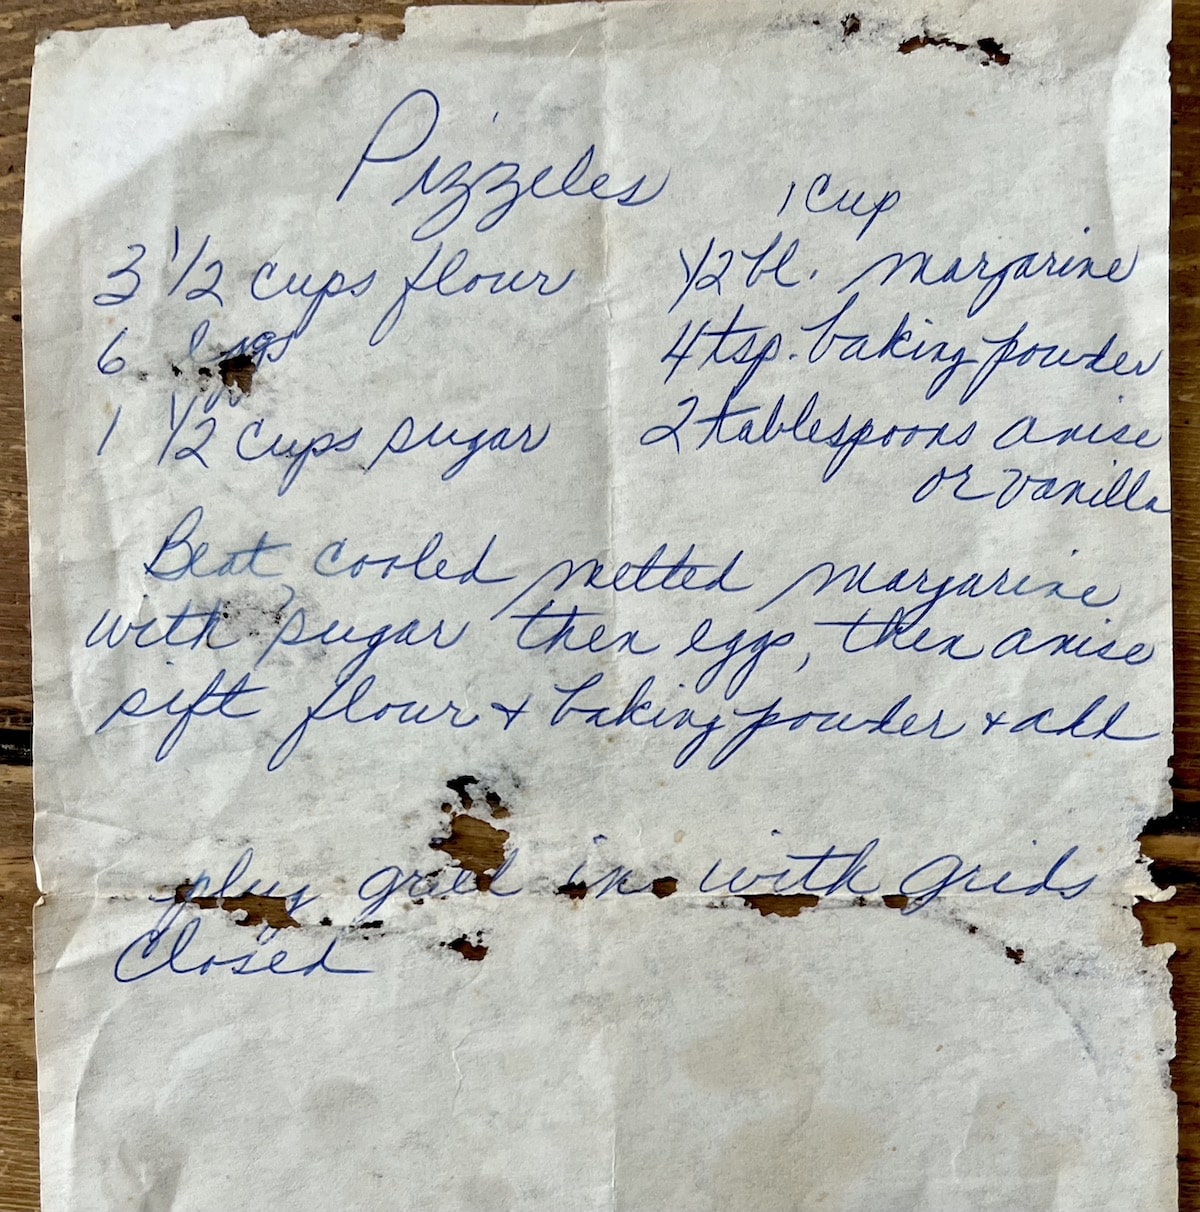 Pizzeles
3 1/2 cups flour
6 eggs
1 1/2 cups sugar
1 cup
1/2 bl. margarine
4 tsp. baking powder
2 tablespoons anise
or vanilla
Beat cooled melted margarine
with sugar then eggs, then anise
sift flour + baking powder + add
plug grill in with grids
closed